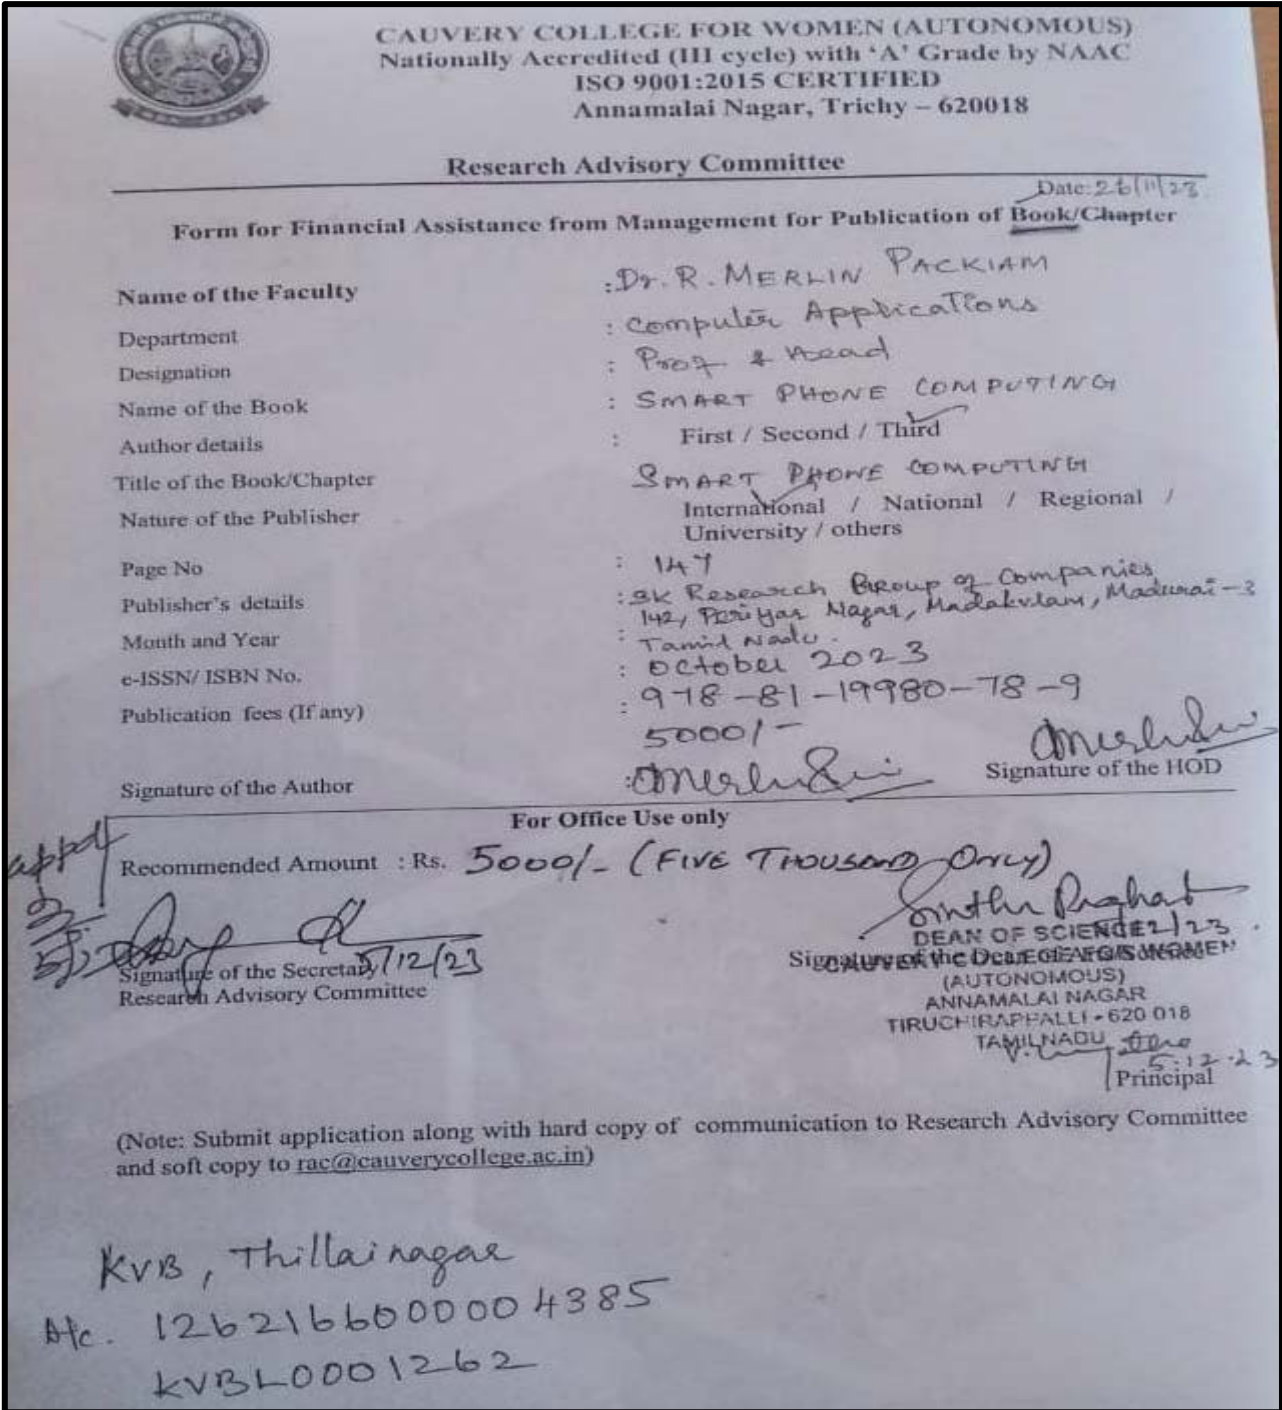 CAUVERY COLLEGE FOR WOMEN (AUTONOMOUS)
Nationally Accredited (III cycle) with ‘A’ Grade by NAAC
ISO 9001:2015 CERTIFIED
Annamalai Nagar, Trichy – 620018
Research Advisory Committee
Date: 26/11/23
Form for Financial Assistance from Management for Publication of Book/Chapter
Name of the Faculty : Dr. R. MERLIN PACKIAM
Department : Computer Applications
Designation : Prof & Head
Name of the Book : SMART PHONE COMPUTING
Author details : First / Second / Third
Title of the Book/Chapter SMART PHONE COMPUTING
Nature of the Publisher International / National / Regional /
University / others
Page No : 147
Publisher's details : SK Research Group of Companies
142, Periyar Nagar, Madakulam, Madurai-3
Tamil Nadu.
Month and Year : October 2023
e-ISSN/ ISBN No. : 978-81-19980-78-9
Publication fees (If any) 5000/-
Signature of the Author :
Signature of the HOD
For Office Use only
appd
Recommended Amount : Rs. 5000/- (FIVE THOUSAND ONLY)
5/12/23
Signature of the Secretary
Research Advisory Committee
DEAN OF SCIENCE
Signature of the Dean
CAUVERY COLLEGE FOR WOMEN
(AUTONOMOUS)
ANNAMALAI NAGAR
TIRUCHIRAPPALLI - 620 018
TAMILNADU
5.12.23
Principal
(Note: Submit application along with hard copy of communication to Research Advisory Committee
and soft copy to rac@cauverycollege.ac.in)
KVB, Thillainagar
A/c. 1262166000004385
KVBL0001262